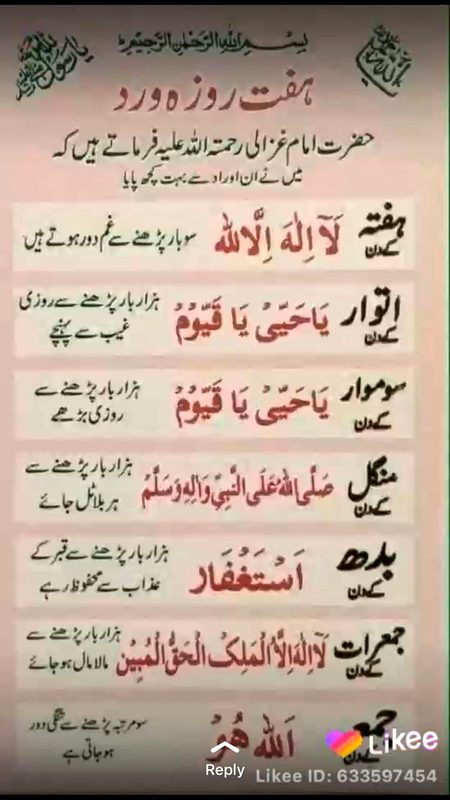 بسم اللہ الرحمٰن الرحیم
ہفت روزہ ورد
حضرت امام غزالی رحمتہ اللہ علیہ فرماتے ہیں کہ
میں نے ان اوراد سے بہت کچھ پایا
ہفتہ کے دن
لَآ اِلٰهَ اِلَّا اللہ
سو بار پڑھنے سے غم دور ہوتے ہیں
اتوار کے دن
یَاحَیّیُ یَا قَیّوْمُ
ہزار بار پڑھنے سے روزی
غیب سے پہنچے
سوموار کے دن
یَاحَیّیُ یَا قَیّوْمُ
ہزار بار پڑھنے سے
روزی بڑھے
منگل کے دن
صَلَّی اللہُ عَلَی النَّبِیِّ وَاٰلِہٖ وَسَلَّمْ
ہزار بار پڑھنے سے
ہر بلا ٹل جائے
بدھ کے دن
اَسْتَغْفَار
ہزار بار پڑھنے سے قبر کے
عذاب سے محفوظ رہے
جمعرات کے دن
لَآ اِلٰهَ اِلَّا اللہُ الْمَلِکُ الْحَقُّ الْمُبِیْن
ہزار بار پڑھنے سے
مالا مال ہو جائے
جمعہ دن
اَللہ ھُوْ
سو مرتبہ پڑھنے سے تنگی دور
ہو جاتی ہے
Reply
Likee
Likee ID: 633597454